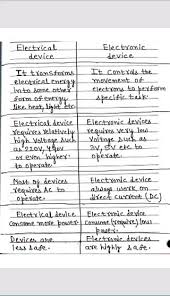 Electrical device
Electronic device
It transforms electrical energy into some other form of energy like heat, light etc.
It controls the movement of electrons to perform specific task.
Electrical device requires relatively high voltage such as 220V, 440V or even higher to operate.
Electronic devices requires very low voltage such as 3V, 5V etc to operate.
Most of devices requires AC to operate.
Electronic device always work on direct current (DC)
Electrical device consume more power.
Electronic device consume (require) less power.
Devices are less safe.
Electronic devices are highly safe.